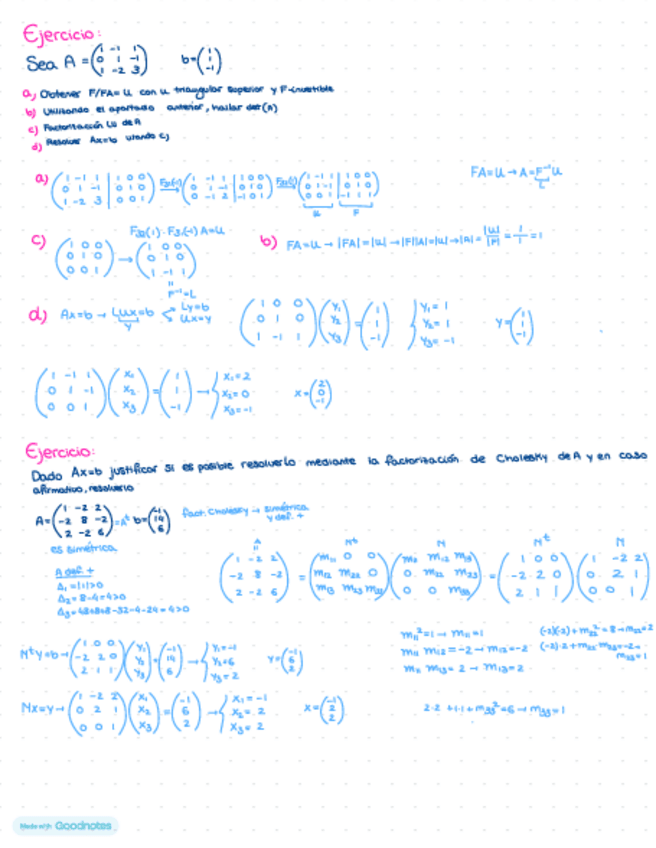 Ejercicio:
Sea A = (1 -1 1; 0 1 -1; 1 -2 3) b = (1; 1; -1)
a) Obtener F/FA=U con U triangular superior y F invertible
b) Utilizando el apartado anterior, hallar det(A)
c) Factorización LU de A
d) Resolver Ax=b usando c)
a) (1 -1 1 | 1 0 0; 0 1 -1 | 0 1 0; 1 -2 3 | 0 0 1) → (1 -1 1 | 1 0 0; 0 1 -1 | 0 1 0; 0 -1 2 | -1 0 1) → (1 -1 1 | 1 0 0; 0 1 -1 | 0 1 0; 0 0 1 | -1 1 1)
U F
FA=U → A=F⁻¹U
L
F32(1)·F31(-1) A=U
c) (1 0 0; 0 1 0; 0 0 1) → (1 0 0; 0 1 0; 1 -1 1)
F⁻¹=L
b) FA=U → |FA|=|U| → |F||A|=|U| → |A| = |U|/|F| = 1/1 = 1
d) Ax=b → LUx=b Ly=b
Y Ux=Y
(1 0 0; 0 1 0; 1 -1 1)(Y1; Y2; Y3) = (1; 1; -1) { Y1=1 Y2=1 Y3=-1 Y=(1; 1; -1)
(1 -1 1; 0 1 -1; 0 0 1)(X1; X2; X3) = (1; 1; -1) → { X1=2 X2=0 X3=-1 X=(2; 0; -1)
Ejercicio:
Dado Ax=b justificar si es posible resolverlo mediante la factorización de Cholesky de A y en caso
afirmativo, resolverlo
A=(1 -2 2; -2 8 -2; 2 -2 6)=Aᵗ b=(-1; 14; 6) fact. Cholesky → simétrica
y def. +
es simétrica
A def +
Δ1=|1|>0
Δ2=8-4=4>0
Δ3=48+8+8-32-4-24=4>0
A Nᵗ N Nᵗ N
(1 -2 2; -2 8 -2; 2 -2 6) = (m11 0 0; m12 m22 0; m13 m23 m33)(m11 m12 m13; 0 m22 m23; 0 0 m33) = (1 0 0; -2 2 0; 2 1 1)(1 -2 2; 0 2 1; 0 0 1)
m11²=1 → m11=1
m11 m12=-2 → m12=-2
m11 m13=2 → m13=2
(-2)(-2)+m22²=8 → m22=2
(-2)·2+m22·m23=-2 →
m23=1
2·2+1·1+m33²=6 → m33=1
Nᵗy=b → (1 0 0; -2 2 0; 2 1 1)(Y1; Y2; Y3) = (-1; 14; 6) → { Y1=-1 Y2=6 Y3=2 Y=(-1; 6; 2)
Nx=y → (1 -2 2; 0 2 1; 0 0 1)(X1; X2; X3) = (-1; 6; 2) → { X1=-1 X2=2 X3=2 X=(-1; 2; 2)
Made with Goodnotes